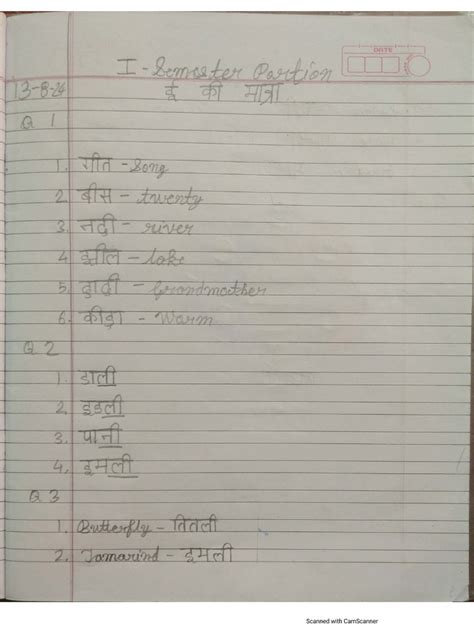 DATE
I - Semester Partion
13-8-24 ई की मात्रा
Q 1
1. गीत - Song
2. बीस - twenty
3. नदी - river
4. झील - lake
5. दादी - Grandmother
6. कीड़ा - Warm
Q 2
1. डाली
2. इडली
3. पानी
4. इमली
Q 3
1. Butterfly - तितली
2. Tamarind - इमली
Scanned with CamScanner